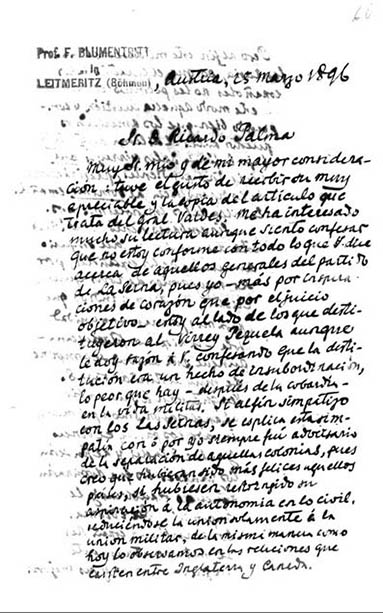 Prof. F. BLUMENTRITT
in
LEITMERITZ (Böhmen)
Austria, 15 marzo 1896
Sr. D. Ricardo Palma
Muy Sr. mío y de mi mayor considera-
ción: tuve el gusto de recibir su muy
apreciable y la copia del artículo que
trata del Gral Valdés. Me ha interesado
mucho su lectura aunque siento confesar
que no estoy conforme con todo lo que V. dice
acerca de aquellos generales del partido
de La Serna, pues yo - más por inspira-
ciones de corazón que por el juicio
objetivo - estoy al lado de los que desti-
tuyeron al Virrey Pezuela aunque
le doy razón á V. confesando que la desti-
tución era un hecho de insubordinación,
lo peor que hay - después de la cobardía -
en la vida militar. Si al fin simpatizo
con los Las Sernas, se explica esta sim-
patía con que yo siempre fuí adversario
de la separación de aquellas colonias, pues
creo que hubieran sido más felices aquellos
países, si hubiesen restringido su
aspiración á la autonomía en lo civil,
reduciéndose la unión solamente á la
unión militar, de la misma manera como
hoy lo observamos en las relaciones que
existen entre Inglaterra y Canadá.